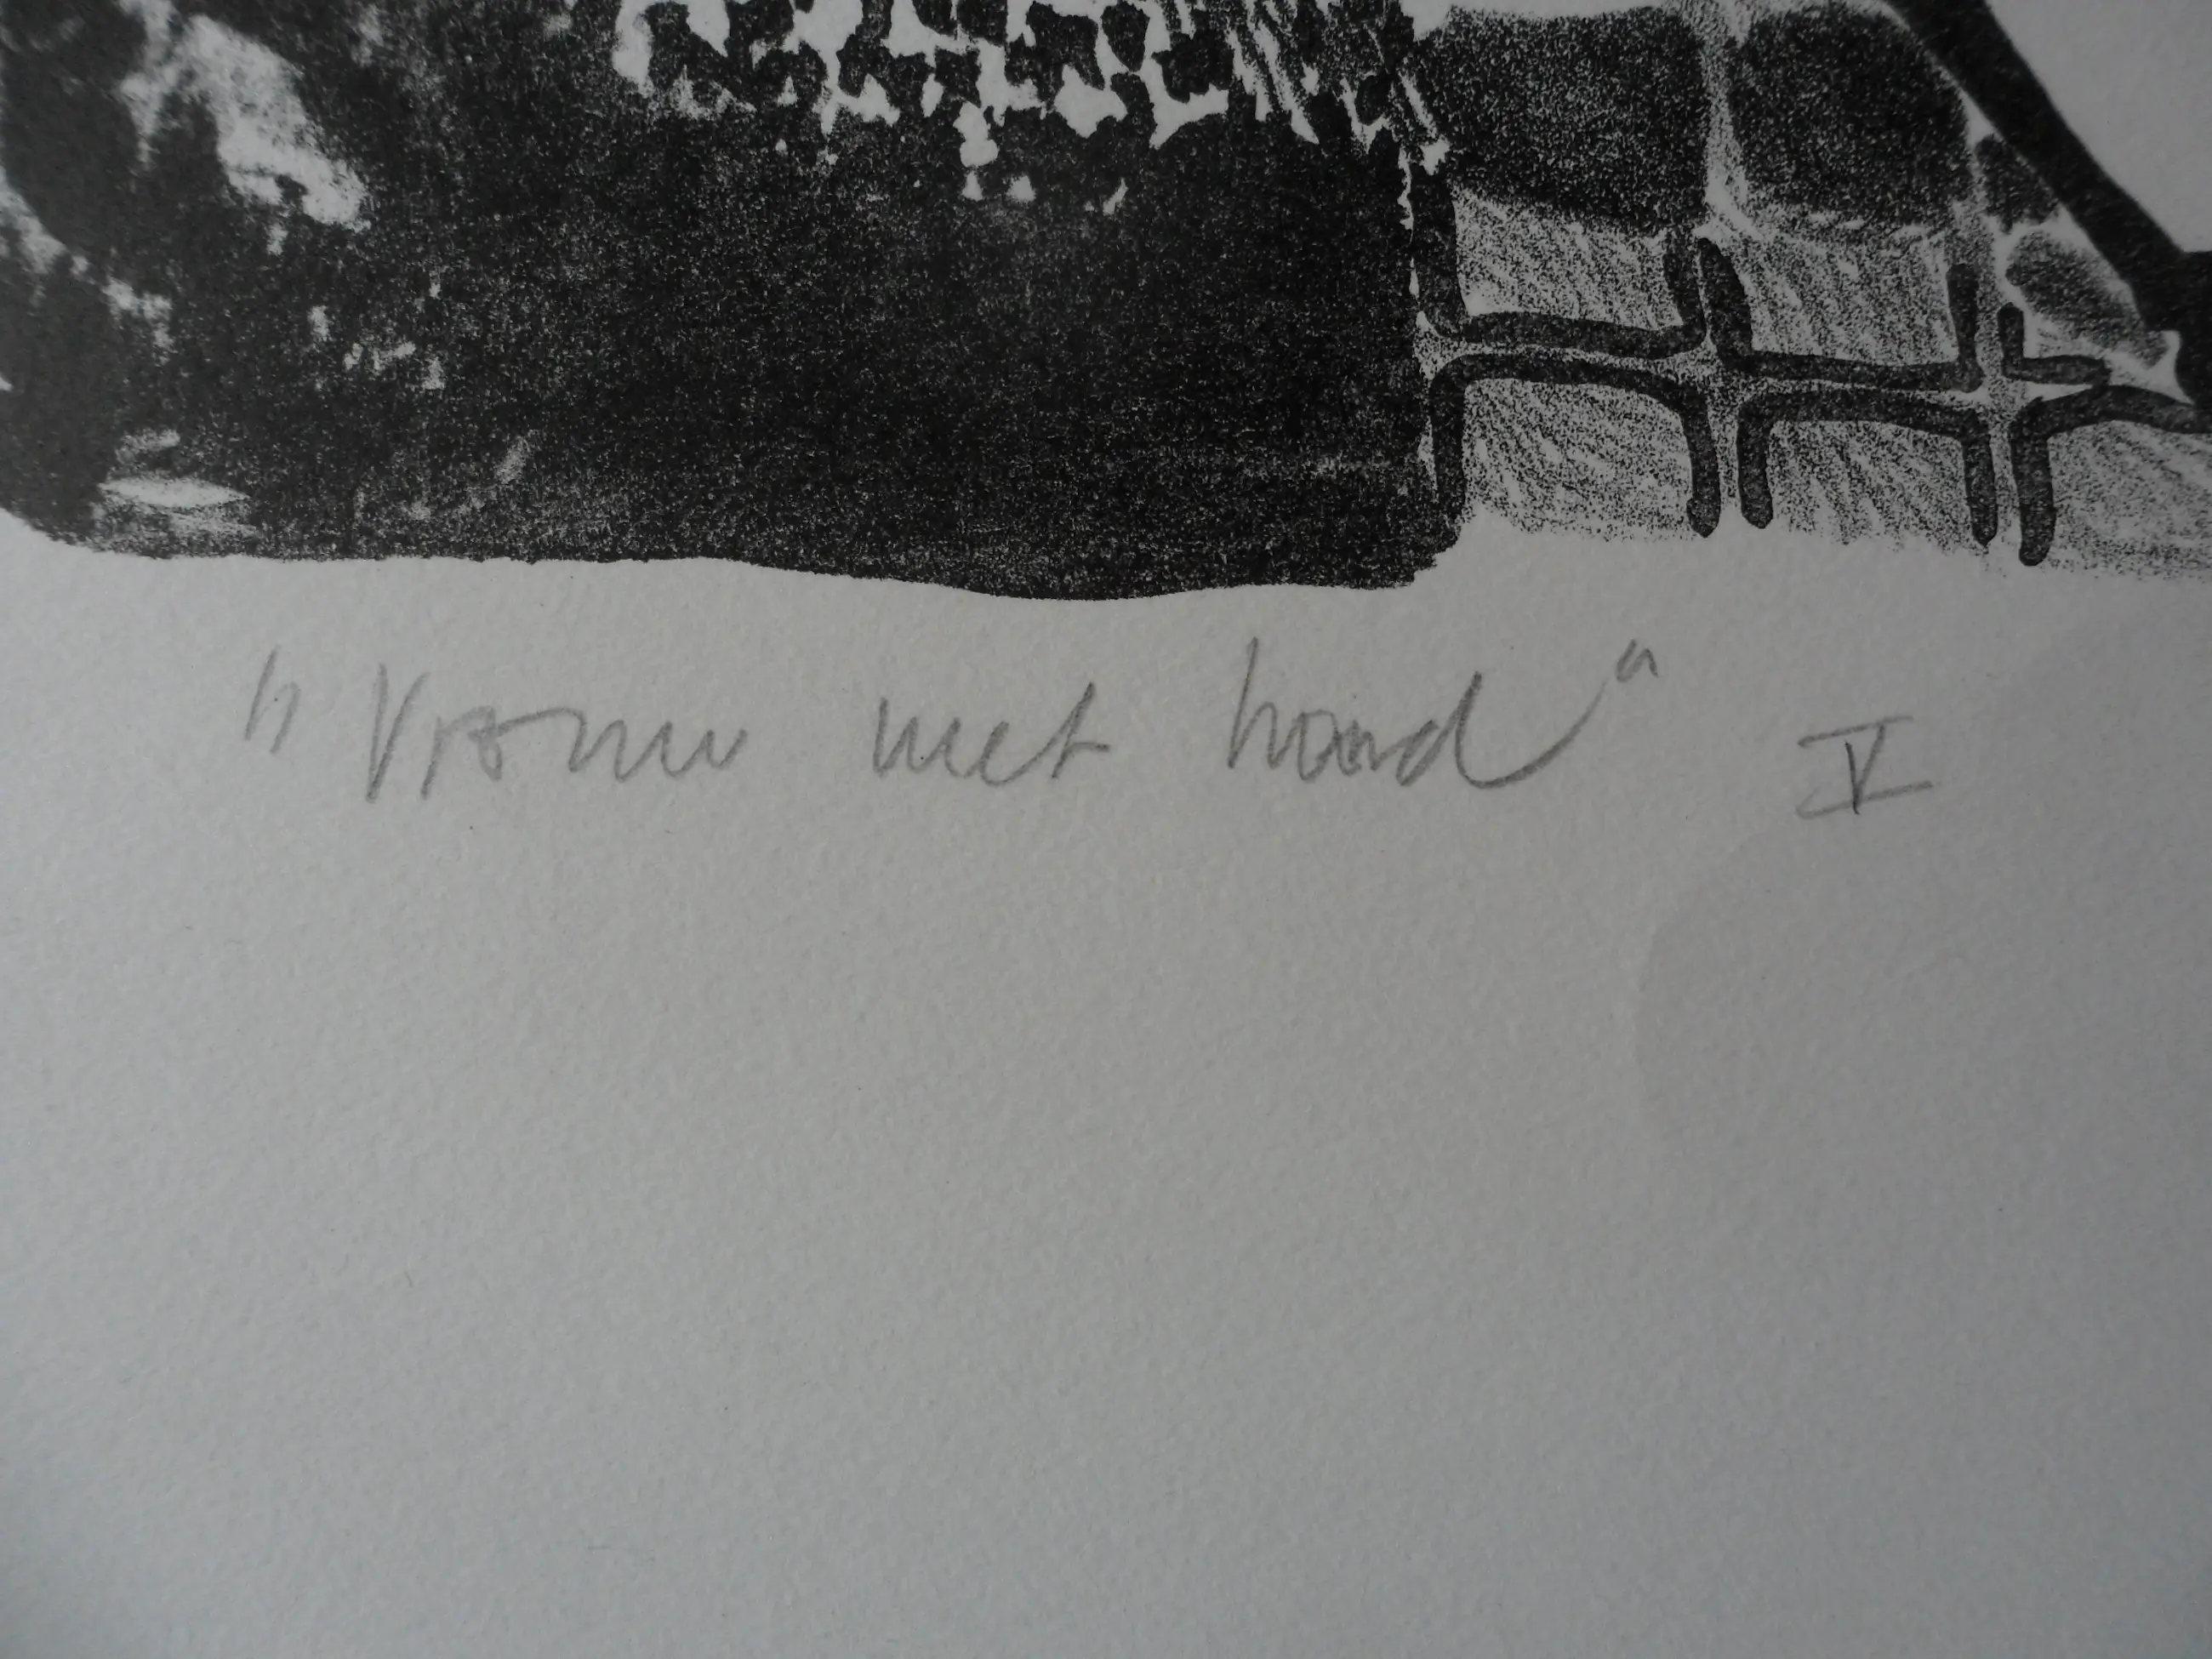 "Vrouw met hond" V